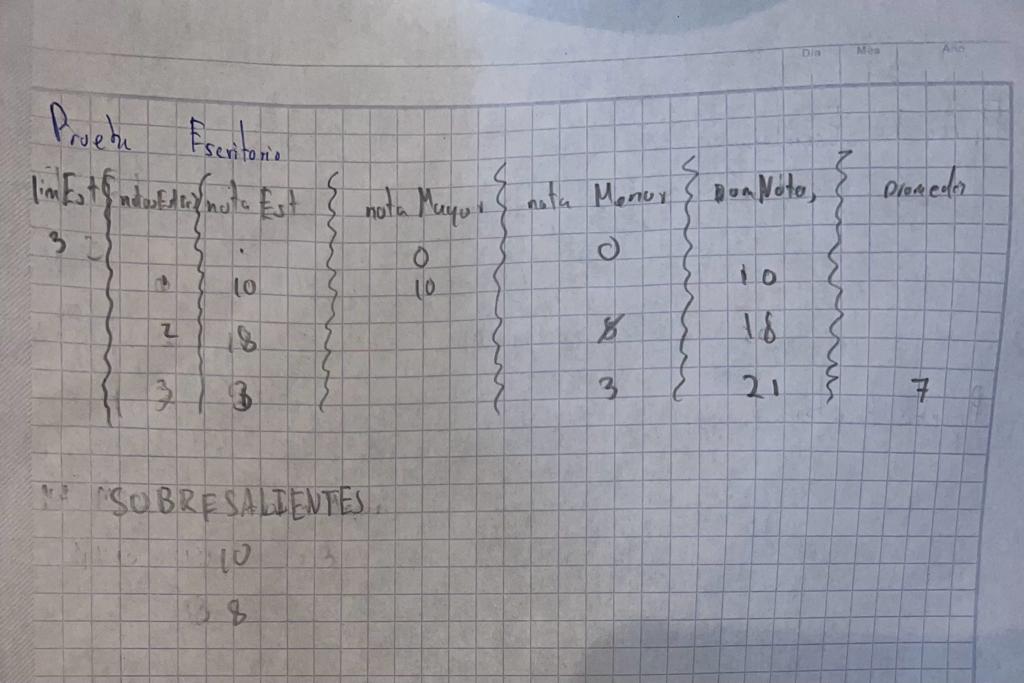 Dia Mes Año
Prueba Escritorio
limEst notaEst nota Mayor nota Menor Promedio
3 0 0
1 10 10 10
2 8 8 18
3 3 3 21 7
SOBRESALIENTES
10
8